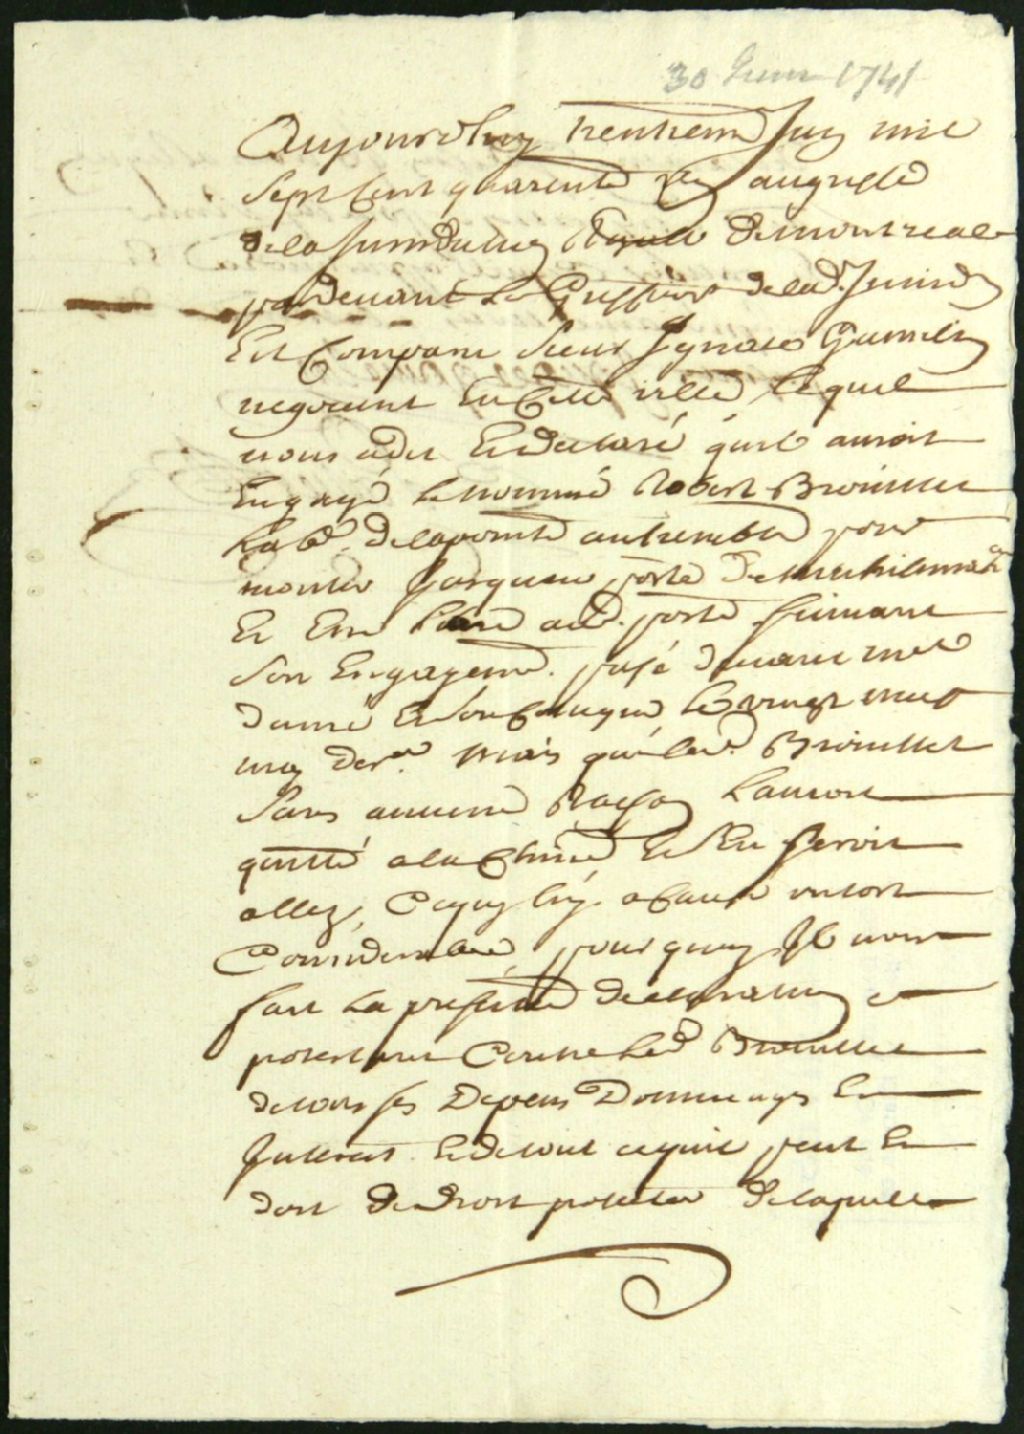 30 Juin 1741
Aujourdhuy trentieme Juin mil
Sept Cent quarente un au greffe
de la Jurisdiction Royalle de montreal
pardevant Le Greffier de lad. Jurisdon
Est Comparu Sieur Ignace Gamelin
negotiant En Cette ville Lequel
nous a dit Et declaré quil auroit
Engagé le nommé Robert Brouillet
habt. de la pointe aux trembles pour
monter Jusquau poste de michilimakna
Et Estre Libre aud. poste suivant
Son Engagemt. passé devant me
Et Son Confrere Le vingt neuf
may der. mais que led. Brouillet
Sans aucune Raison Lauroit
quitté a la Chine Et Sen seroit
allez, Ce qui luy a Causé un tort
Considerable, pourquoy Il nous
fait La presente declaration et
proteste Contre led Brouillet
de tous ses Depens Dommages Et
Interests Et de tout ce quil peut Et
doit de droit protester de laquelle